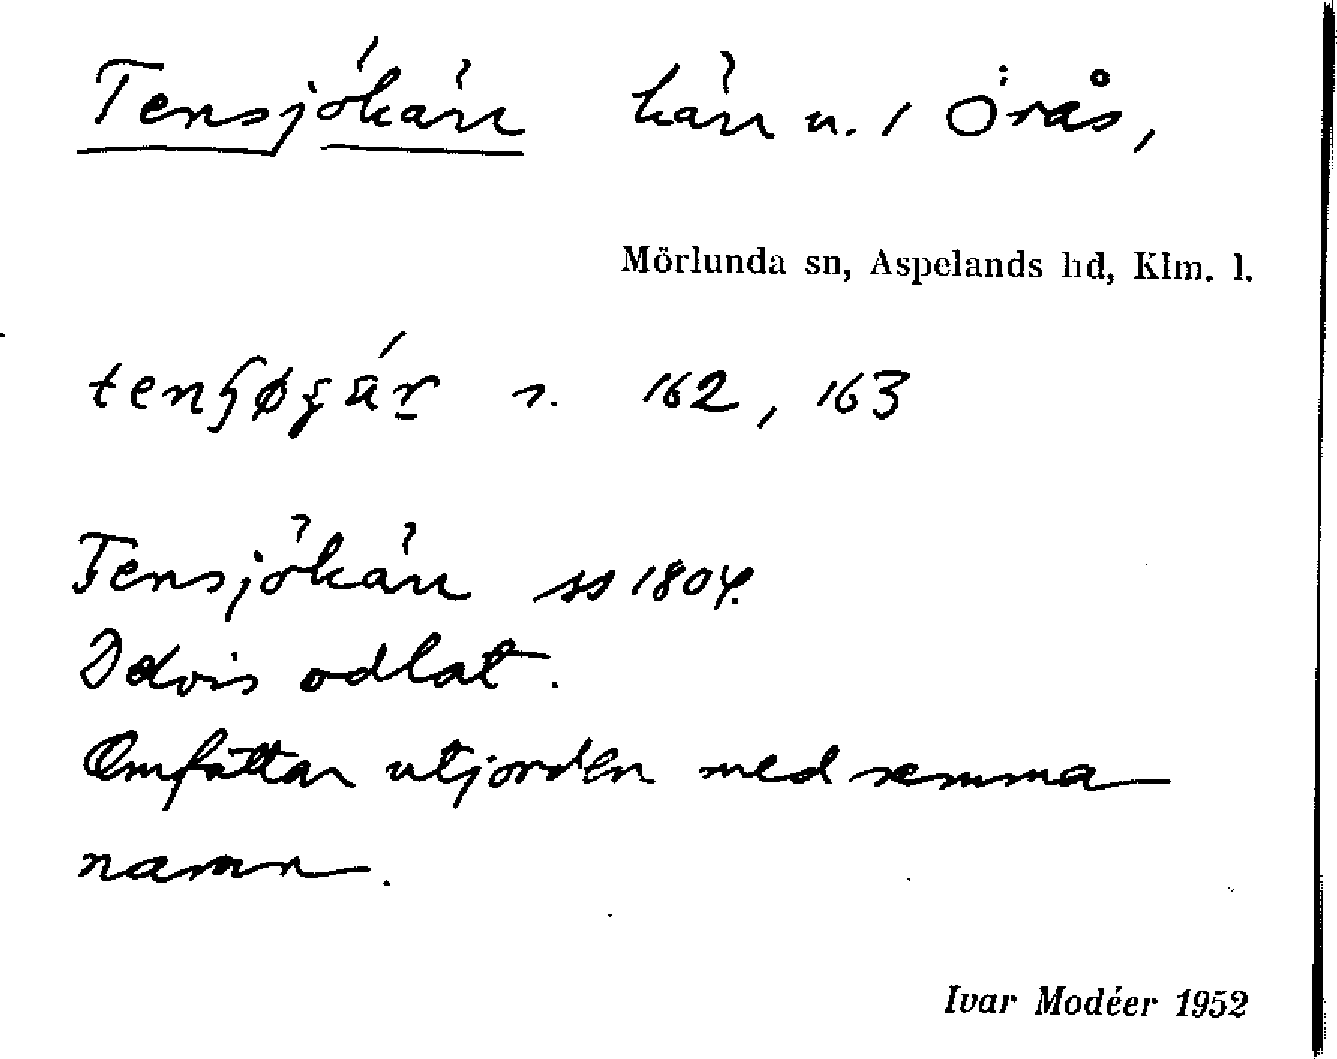 Tensjökärr kärr u. / Örås,
Mörlunda sn, Aspelands hd, Klm. l.
s. 162, 163
Tensjökärr ss 1804.
Delvis odlat.
Omfattar utjorden med samma
namn.
Ivar Modéer 1952